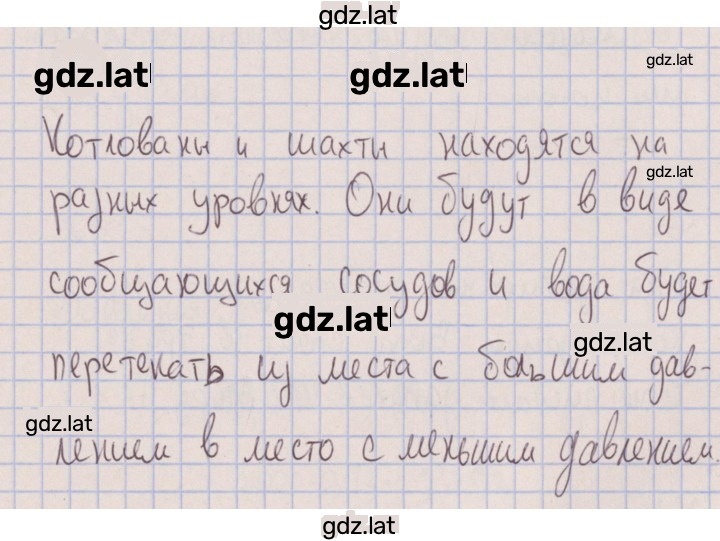 gdz.lat
gdz.lat gdz.lat gdz.lat
Котлованы и шахты находятся на
gdz.lat
разных уровнях. Они будут в виде
сообщающихся сосудов и вода будет
gdz.lat
gdz.lat
перетекать из места с большим дав-
gdz.lat
лением в место с меньшим давлением.
gdz.lat